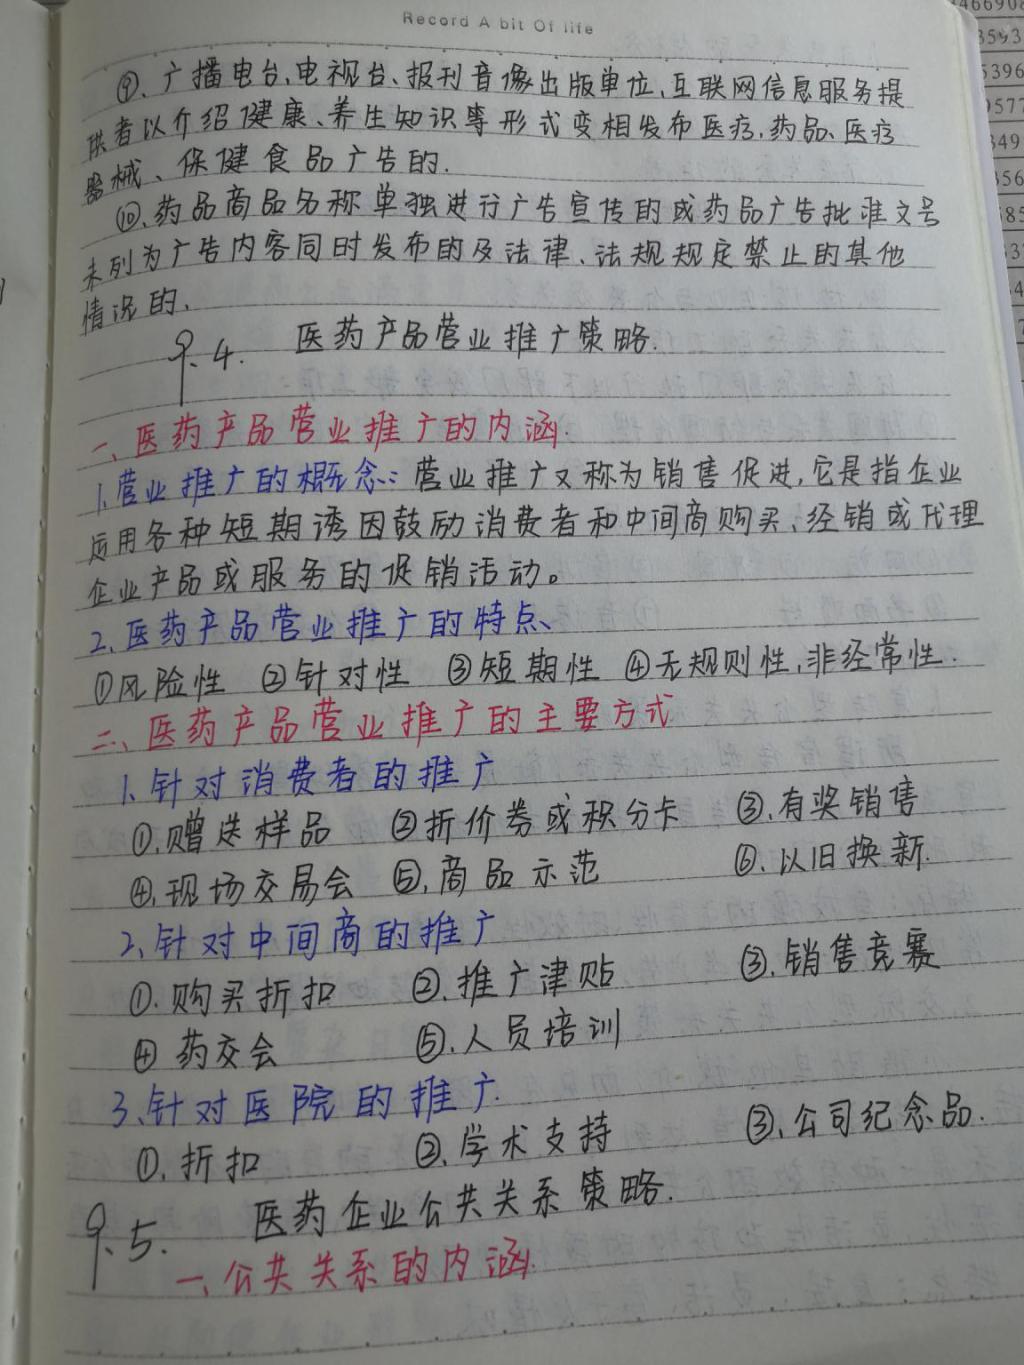 Record A bit Of life
⑨、广播电台、电视台、报刊音像出版单位,互联网信息服务提
供者以介绍健康、养生知识等形式变相发布医疗,药品、医疗
器械、保健食品广告的.
⑩、药品商品名称单独进行广告宣传的或药品广告批准文号
未列为广告内容同时发布的及法律、法规规定禁止的其他
情况的、
9.4. 医药产品营业推广策略.
一、医药产品营业推广的内涵.
1.营业推广的概念:营业推广又称为销售促进,它是指企业
运用各种短期诱因鼓励消费者和中间商购买、经销或代理
企业产品或服务的促销活动。
2、医药产品营业推广的特点、
①风险性 ②针对性 ③短期性 ④无规则性,非经常性.
二、医药产品营业推广的主要方式
1、针对消费者的推广
①.赠送样品 ②折价券或积分卡 ③.有奖销售
④.现场交易会 ⑤.商品示范 ⑥.以旧换新.
2、针对中间商的推广
①.购买折扣 ②.推广津贴 ③.销售竞赛
④ 药交会 ⑤.人员培训
3、针对医院的推广.
①.折扣 ②.学术支持 ③.公司纪念品.
9.5. 医药企业公共关系策略.
一、公共关系的内涵.